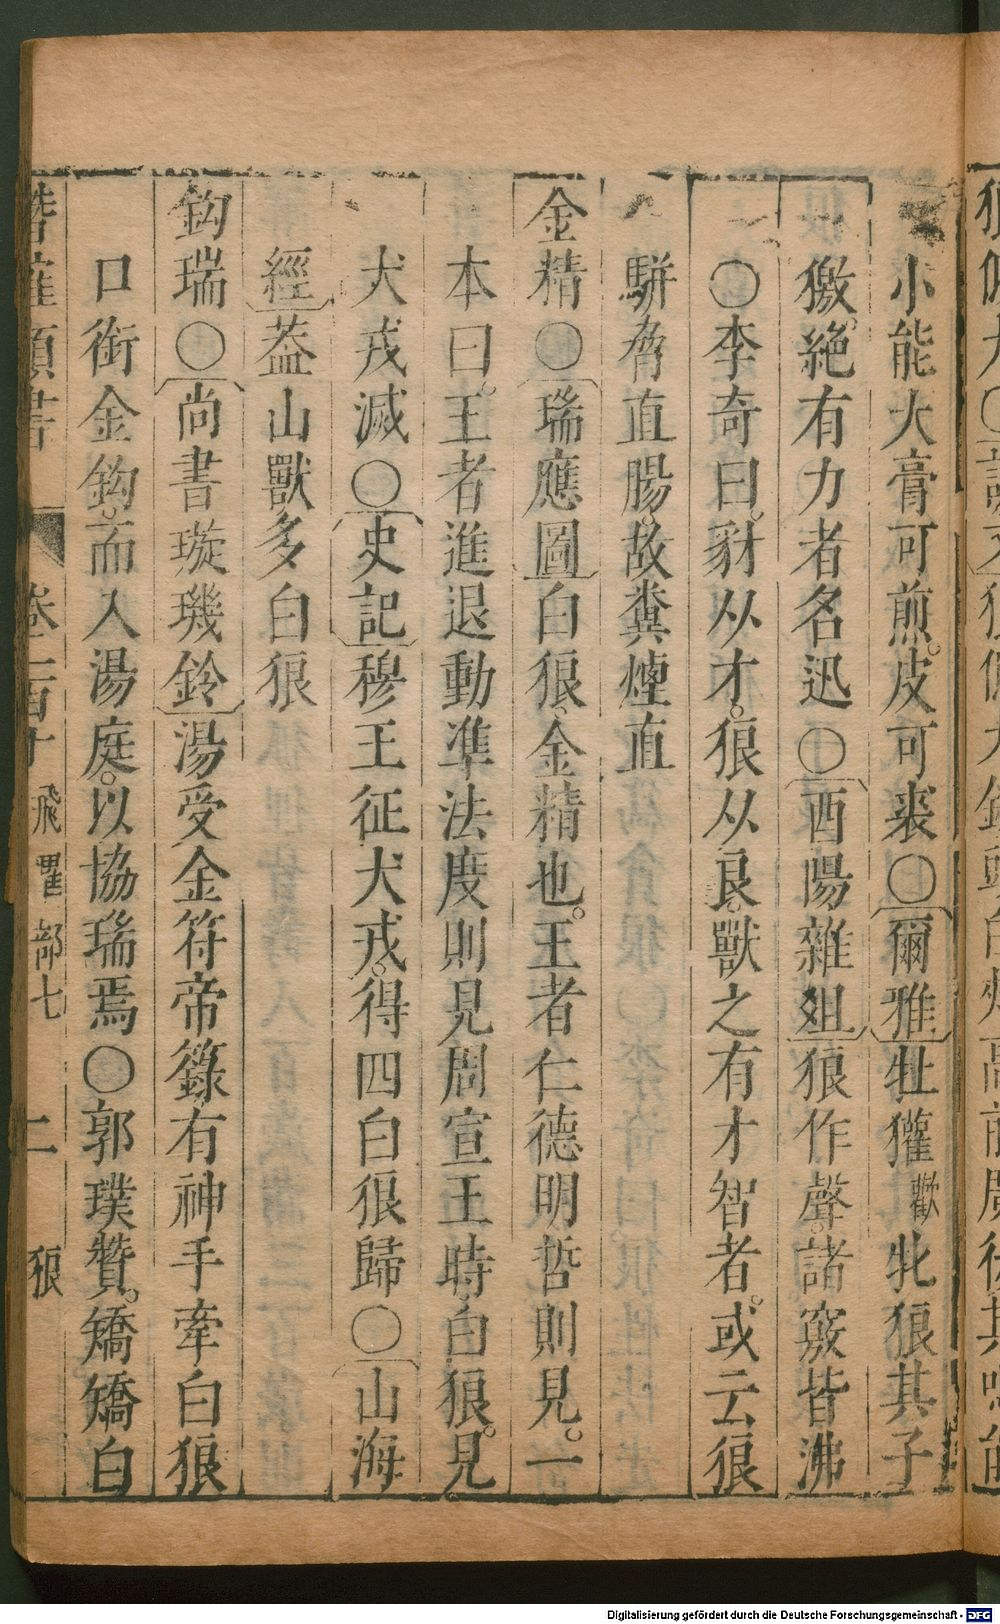 小能大膏可煎皮可裘○爾雅牡獾歡牝狼其子
獥絕有力者名迅○酉陽雜爼狼作聲諸竅皆沸
○李奇曰豺从才狼从良獸之有才智者或云狼
駢脅直腸故糞煙直
金精○瑞應圖白狼金精也王者仁德明哲則見一
本曰王者進退動準法度則見周宣王時白狼見
犬戎滅○史記穆王征犬戎得四白狼歸○山海
經蓋山獸多白狼
鈎瑞○尚書璇璣鈴湯受金符帝籙有神手牽白狼
口銜金鈎而入湯庭以協瑞焉○郭璞贊矯矯白
卷二百十 飛 部七 二 狼
Digitalisierung gefördert durch die Deutsche Forschungsgemeinschaft - DFG